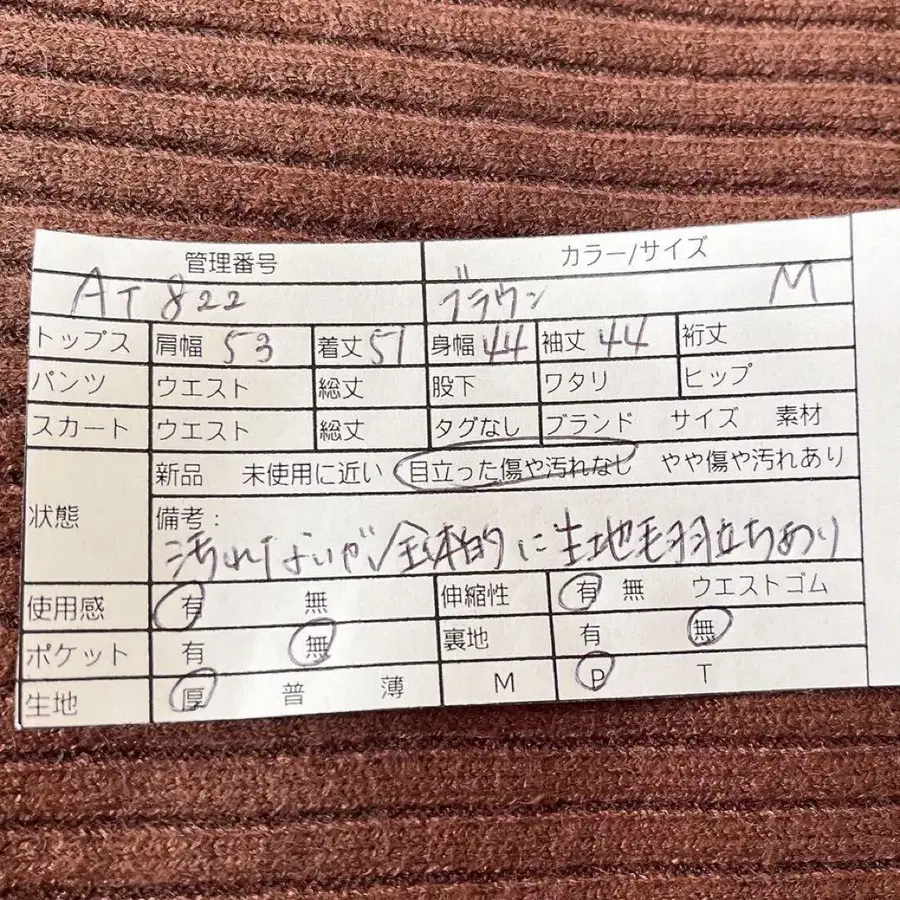 管理番号 カラー/サイズ
AT 822 ブラウン M
トップス 肩幅 53 着丈 51 身幅 44 袖丈 44 裄丈
パンツ ウエスト 総丈 股下 ワタリ ヒップ
スカート ウエスト 総丈 タグなし ブランド サイズ 素材
状態 新品 未使用に近い 目立った傷や汚れなし やや傷や汚れあり
備考：
汚れてないが全体的に生地毛羽立ちあり
使用感 有 無 伸縮性 有 無 ウエストゴム
ポケット 有 無 裏地 有 無
生地 厚 普 薄 M P T